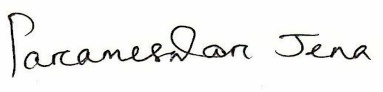 Parameswar Jena